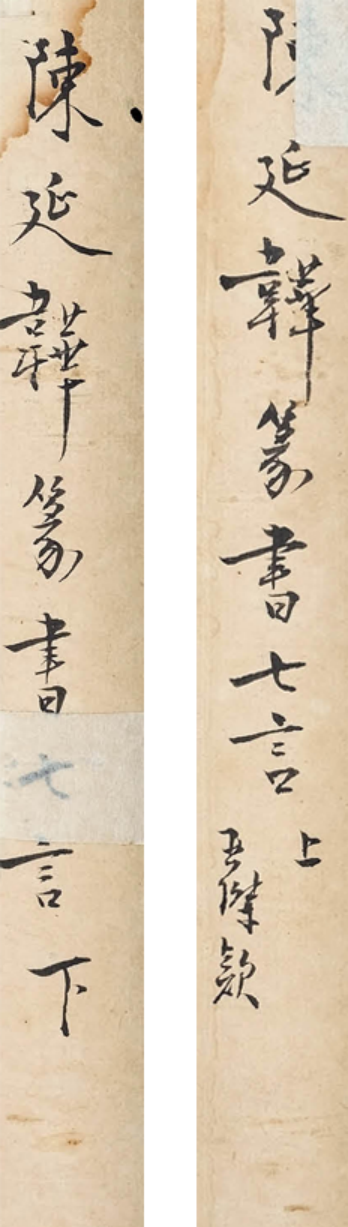 陳延韡篆書七言上
傑款
陳延韡篆書七言下